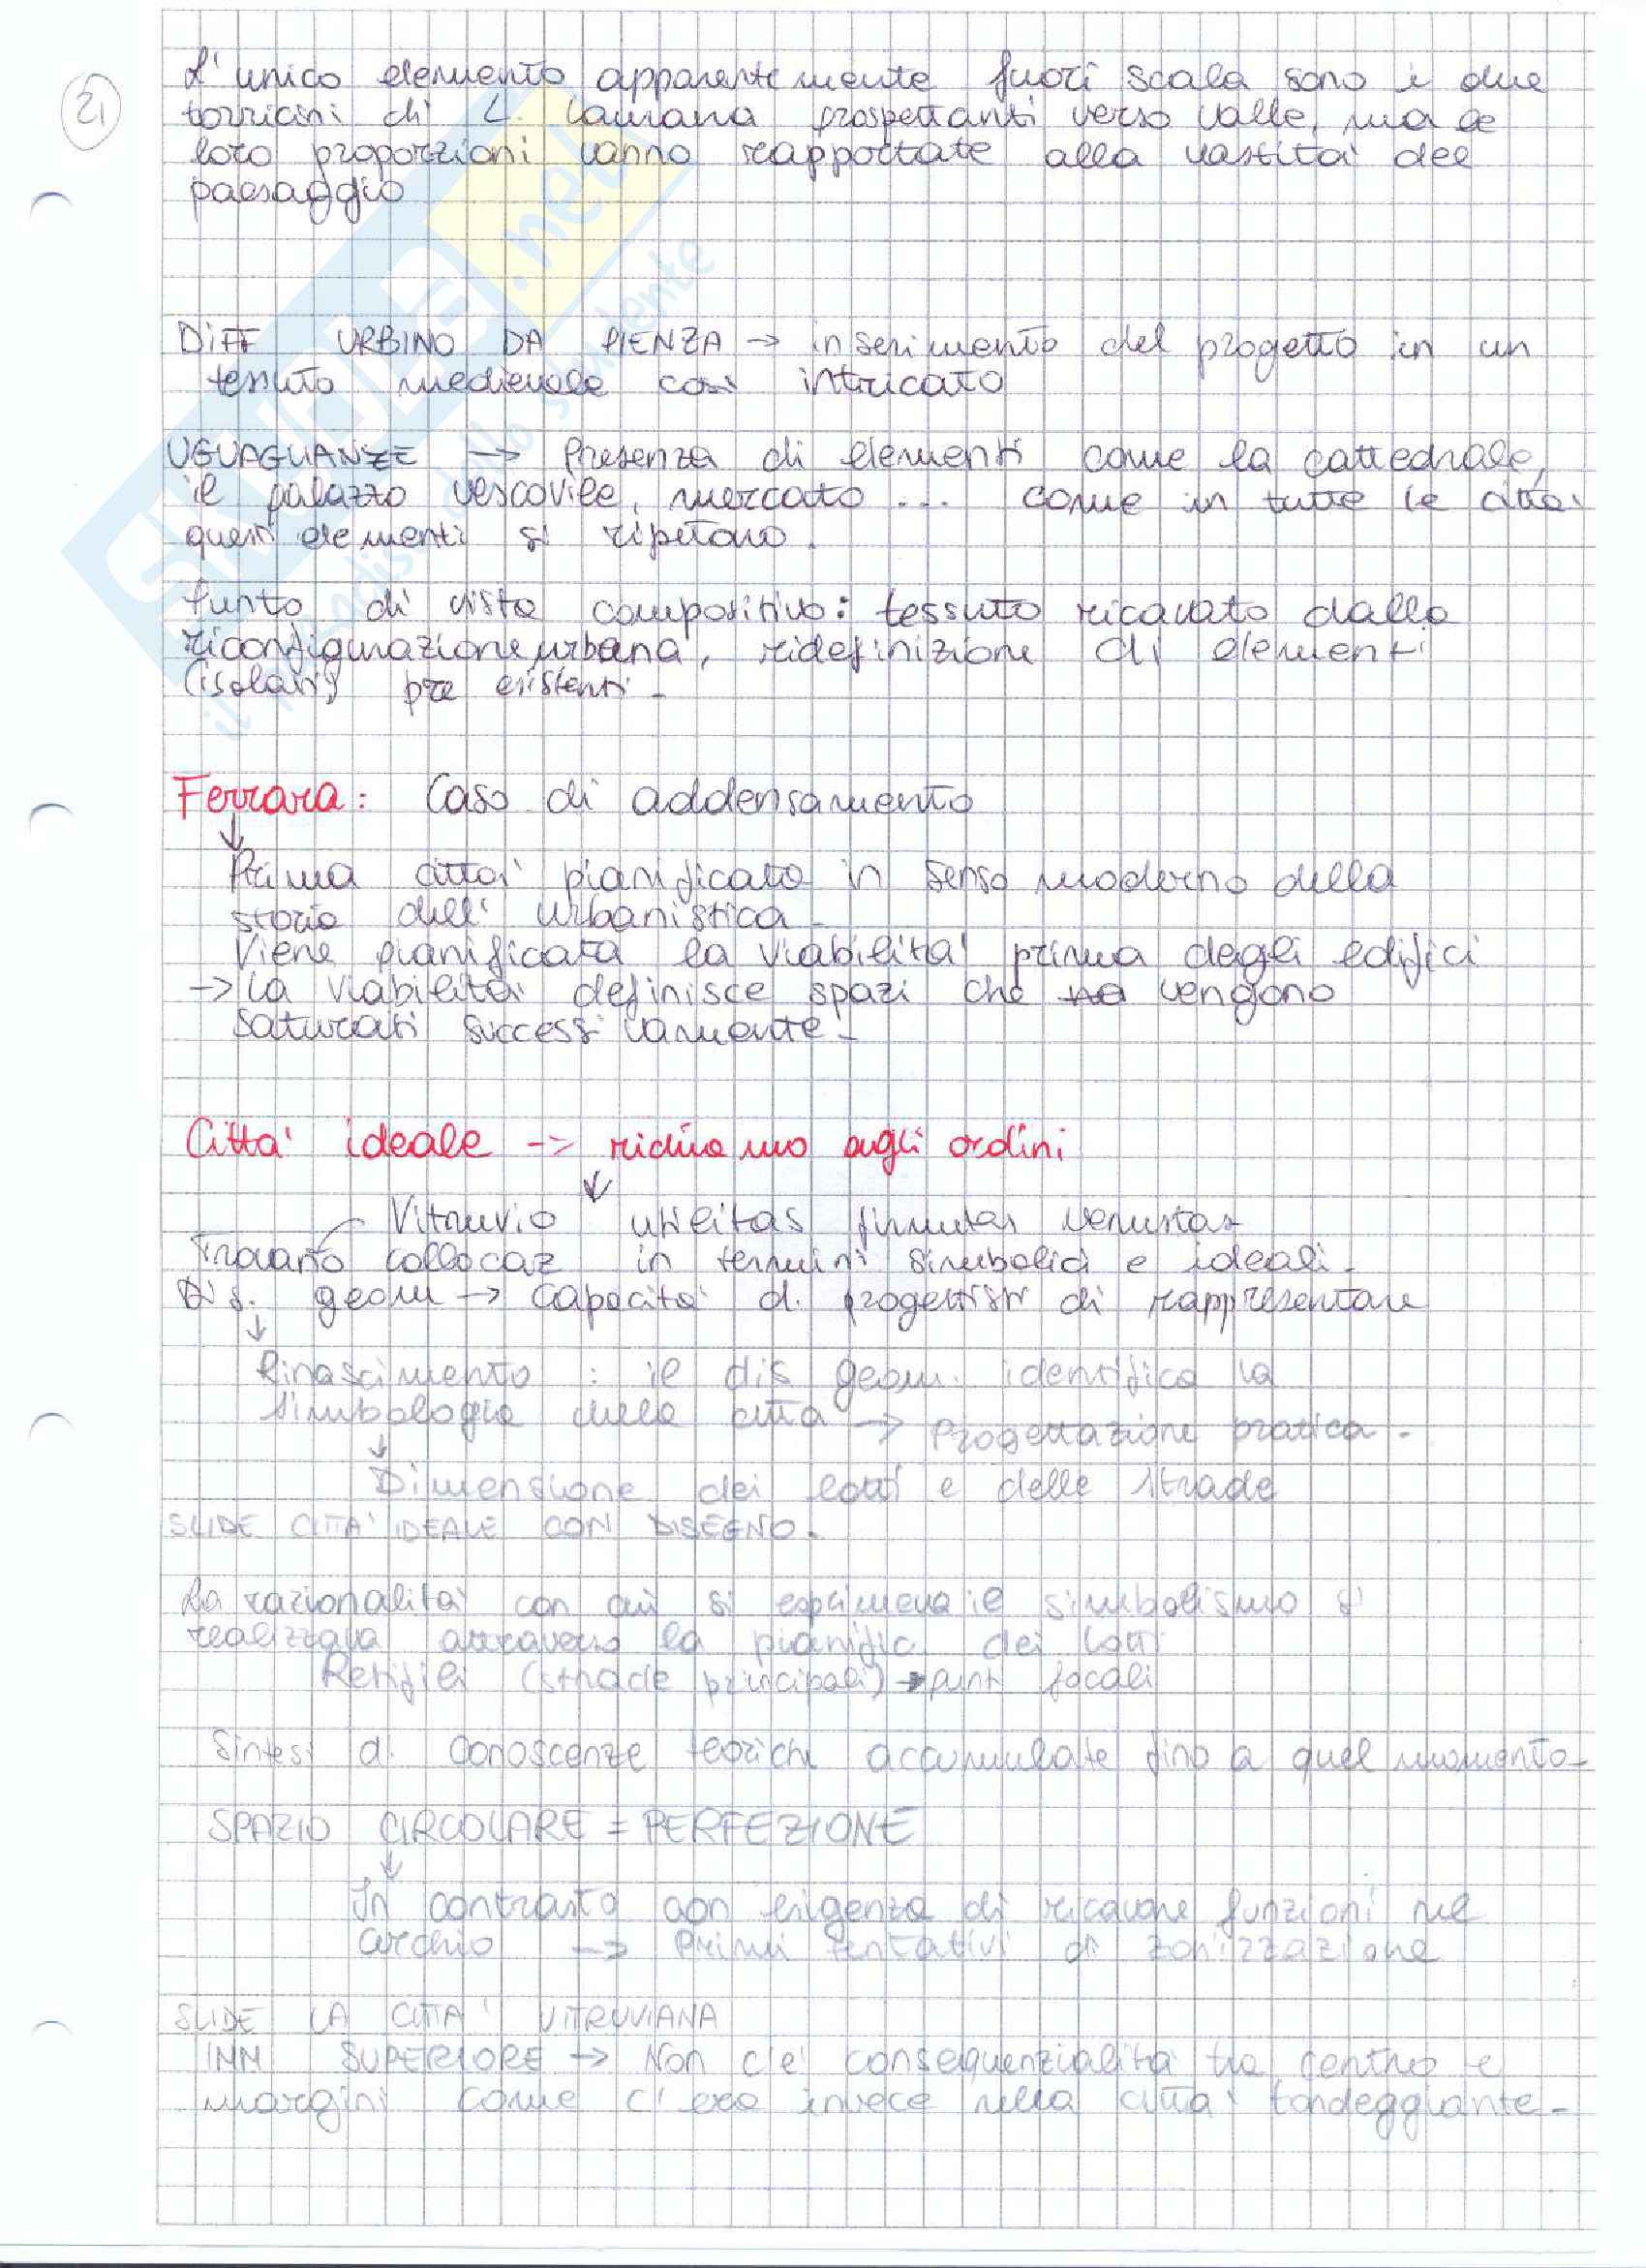 21
L'unico elemento apparentemente fuori scala sono i due
torricini di L. Laurana prospettanti verso valle, ma le
loro proporzioni vanno rapportate alla vastità del
paesaggio
DIFF URBINO DA PIENZA → inserimento del progetto in un
tessuto medievale così intricato
UGUAGLIANZE → Presenza di elementi come la cattedrale,
il palazzo vescovile, mercato ... come in tutte le città
questi elementi si ripetono.
Punto di vista compositivo: tessuto ricavato dalla
riconfigurazione urbana, ridefinizione di elementi
(isolati) pre esistenti.
Ferrara: Caso di addensamento
↓
Prima città pianificata in senso moderno della
storia dell'urbanistica.
Viene pianificata la viabilità prima degli edifici
→ La viabilità definisce spazi che vengono
saturati successivamente.
Città ideale → richiamo agli ordini
↓
Vitruvio utilitas firmitas venustas
Trovano collocaz in termini simbolici e ideali.
Dis. geom → capacità d. progettisti di rappresentare
↓
Rinascimento : il dis geom. identifica la
simbologia della città → Progettazione pratica.
↓
Dimensione dei lotti e delle strade
SLIDE CITTA' IDEALE CON DISEGNO.
La razionalità con cui si esprimeva il simbolismo si
realizzava attraverso la pianific. dei lotti
Rettifili (strade principali) → punti focali
Sintesi di conoscenze teoriche accumulate fino a quel momento.
SPAZIO CIRCOLARE = PERFEZIONE
↓
In contrasto con esigenza di ricavare funzioni nel
cerchio → Primi tentativi di zonizzazione
SLIDE LA CITTA' VITRUVIANA
IMM SUPERIORE → Non c'è consequenzialità tra centro e
margini come c'era invece nella città tondeggiante.
SKUOLA.net
il paradiso dello studente